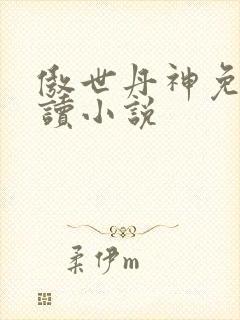 傲世丹神免
讀小説
柔伊m